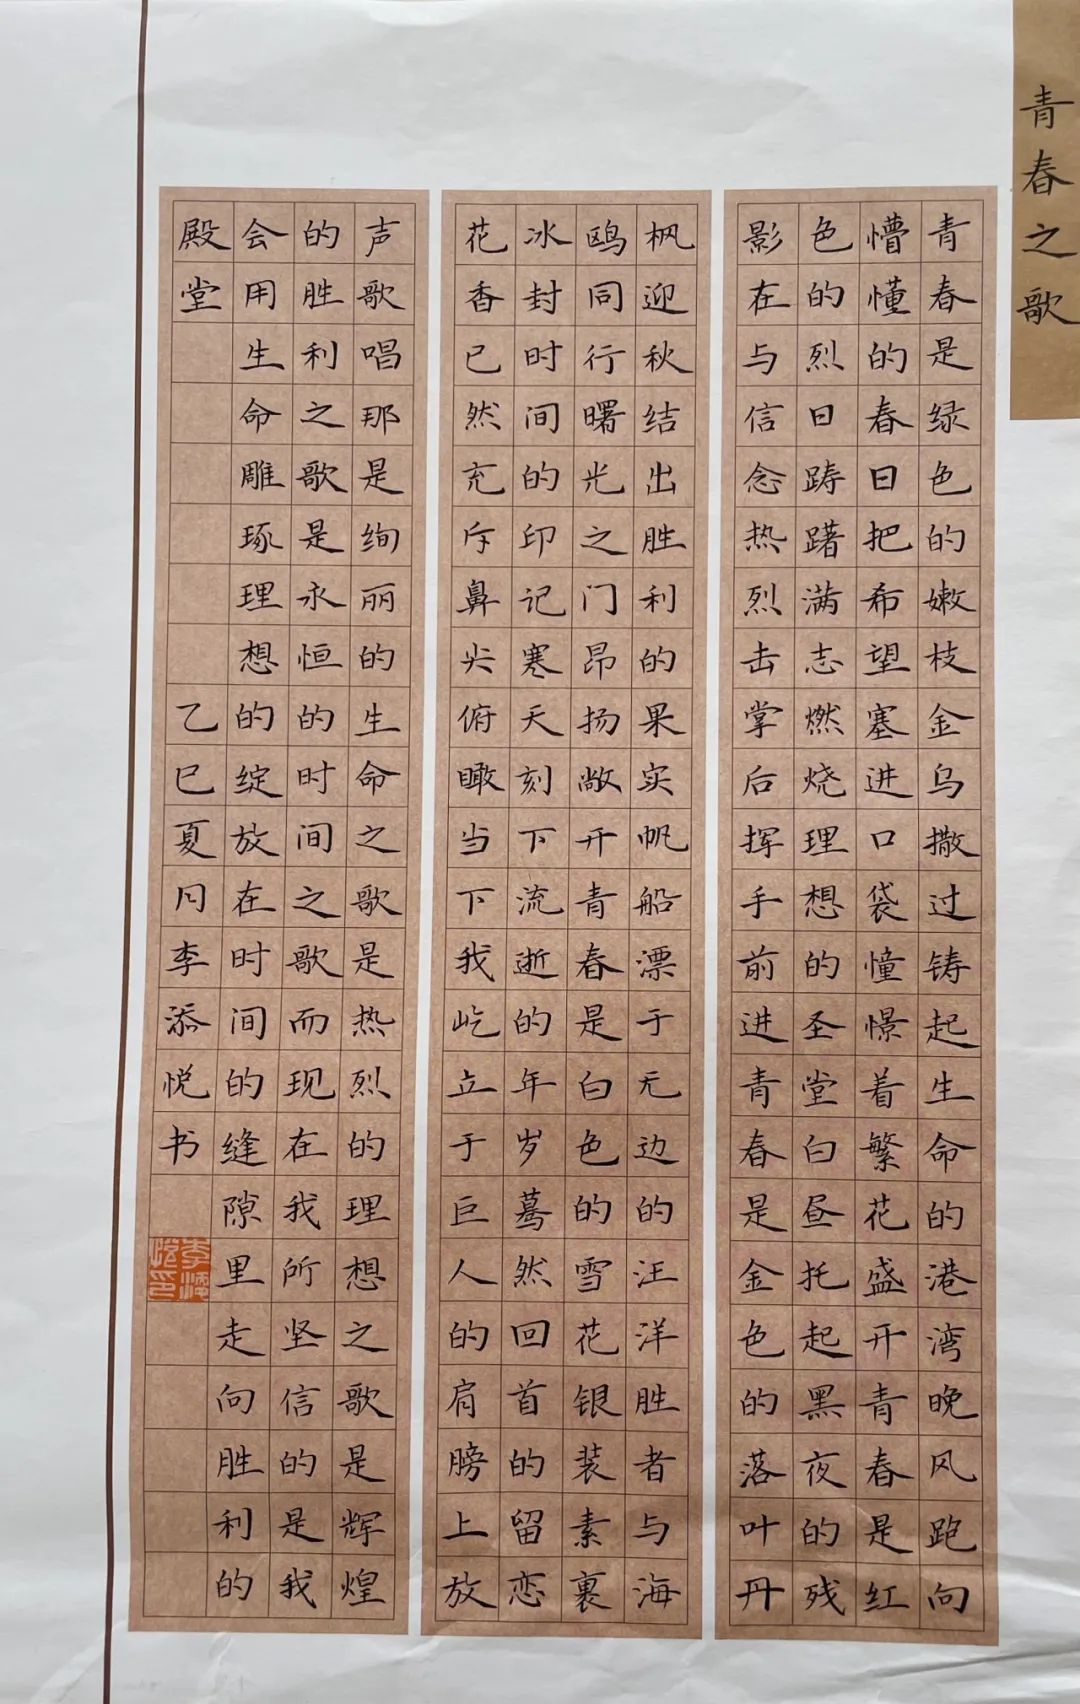 青春之歌
青春是绿色的嫩枝金乌撒过铸起生命的港湾晚风跑向
懵懂的春日把希望塞进口袋憧憬着繁花盛开青春是红
色的烈日踌躇满志燃烧理想的圣堂白昼托起黑夜的残
影在与信念热烈击掌后挥手前进青春是金色的落叶丹
枫迎秋结出胜利的果实帆船漂于无边的汪洋胜者与海
鸥同行曙光之门昂扬敞开青春是白色的雪花银装素裹
冰封时间的印记寒天刻下流逝的年岁蓦然回首的留恋
花香已然充斥鼻尖俯瞰当下我屹立于巨人的肩膀上放
声歌唱那是绚丽的生命之歌是热烈的理想之歌是辉煌
的胜利之歌是永恒的时间之歌而现在我所坚信的是我
会用生命雕琢理想的绽放在时间的缝隙里走向胜利的
殿堂
乙巳夏月李添悦书